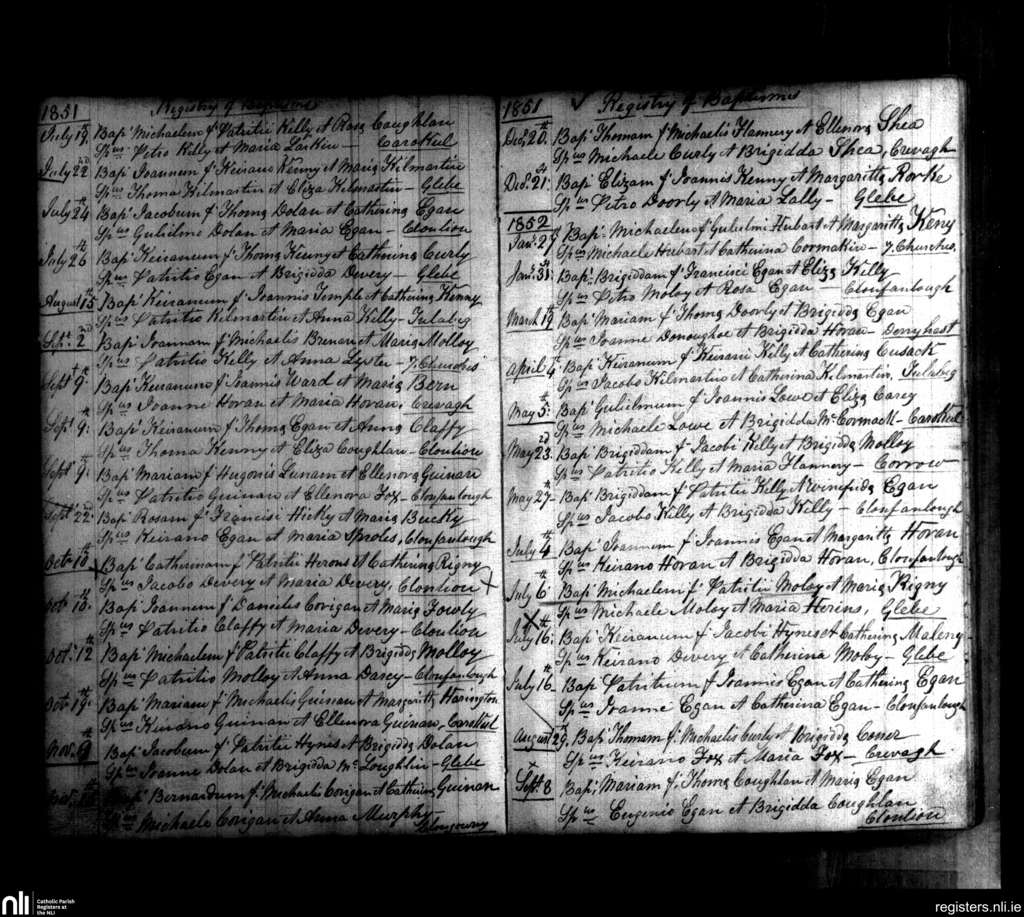 1851 Registry of Baptisms
July 19. Bap! Michaelem f. Patritii Kelly et Rosa Coughlan
Sp.us Petro Kelly et Maria Larkin - Carokeel
July 22nd Bap! Joannem f. Keirani Kenny et Maria Kilmartin
Sp.us Thoma Kilmartin et Eliza Kilmartin - Glebe
July 24th Bap! Jacobum f. Thoma Dolan et Catherina Egan
Sp.us Gulielmo Dolan et Maria Egan - Clonlion
July 26th Bap! Keiranum f. Thoma Kenny et Catherina Curly
Sp.us Patritio Egan et Brigidda Devery - Glebe
August 15th Bap! Keiranum f. Joannis Temple et Catherina Kenny
Sp.us Patritio Kilmartin et Anna Kelly - Tulabeg
Sept. 2nd Bap! Joannam f. Michaelis Brenan et Maria Molloy
Sp.us Patritio Kelly et Anna Lyster - 7. Churches
Sept 9th Bap! Keiranum f. Joannis Ward et Maria Bern
Sp.us Joanne Horan et Maria Horan, Crevagh
Sept. 9th Bap! Keiranum f. Thoma Egan et Anna Claffy
Sp.us Thoma Kenny et Eliza Coughlan - Clonlion
Sept 9th Bap! Mariam f. Hugonis Lunam et Ellenora Guinan
Sp.us Patritio Guinan et Ellenora Fox - Clonfanlough
Sept. 22nd Bap! Rosam f. Francisi Hicky et Maria Bucky
Sp.us Keirano Egan et Maria Sproles, Clonfanlough
Octo. 10th Bap! Catherinam f. Patritii Herons et Catherina Rigny
Sp.us Jacobo Devery et Maria Devery, Clonlion X
Oct 10th Bap! Joannem f. Danielis Corigan et Maria Fowly
Sp.us Patritio Claffy et Maria Devery - Clonlion
Oct. 12th Bap! Michaelem f. Patritii Claffy et Brigidda Molloy
Sp.us Patritio Molloy et Anna Darcy - Clonfanlough
Oct. 19th Bap! Mariam f. Michaelis Guinan et Margaritta Harington
Sp.us Kirano Guinan et Ellenora Guinan, Carokeel
Nov. 9th Bap! Jacobum f. Patritii Hynes et Brigidda Dolan
Sp.us Joanne Dolan et Brigidda McLoughlin - Glebe
Bap! Bernardum f. Michaelis Corigan et Catherina Guinan
Sp.us Michaele Corigan et Anna Murphy
Clongowny
1851 ✓ Registry of Baptismis
Dec. 20th Bap! Thomam f. Michaelis Flannery et Ellenora Shea
Sp.us Michaele Curly et Brigidda Shea, Crevagh
Dec. 21st Bap! Elizam f. Joannis Kenny et Margaritta Rorke
Sp.us Petro Doorly et Maria Lally - Glebe
1852
Jan. 27th Bap! Michaelem f. Gulielmi Hubart et Margaritta Keny
Sp.us Michaele Hubart et Catherina Cormakin - 7. Churches.
Jan. 31st Bap! Brigiddam f. Francisci Egan et Eliza Kelly
Sp.us Petro Moloy et Rosa Egan - Clonfanlough
March 19th Bap! Mariam f. Thoma Doorly et Brigidda Egan
Sp.us Joanne Donoughoe et Brigidda Horan - Derryhast
April 4th Bap! Keiranum f. Keirani Kelly et Catherina Cusack
Sp.us Jacobo Kilmartin et Catherina Kilmartin, Tulabeg
May 5th Bap! Gulielmum f. Joannis Lowe et Eliza Carey
Sp.us Michaele Lowe et Brigidda McCormack - Carokeel
May 23rd Bap! Brigiddam f. Jacobi Kelly et Brigidda Molloy
Sp.us Patritio Kelly et Maria Flannery - Corrow
May 27th Bap! Brigiddam f. Patritii Kelly et Winefrida Egan
Sp.us Jacobo Kelly et Brigidda Kelly - Clonfanlough
July 4th Bap! Joannem f. Joannis Egan et Margaritta Horan
Sp.us Keirano Horan et Brigidda Horan, Clonfanlough
July 6th Bap! Michaelem f. Patritii Moloy et Maria Rigny
Sp.us Michaele Moloy et Maria Herins, Glebe
X July 16th Bap! Keiranum f. Jacobi Hynes et Catherina Maleny
Sp.us Keirano Devery et Catherina Moloy - Glebe
July 16th Bap! Patritium f. Joannis Egan et Catherina Egan
Sp.us Joanne Egan et Catherina Egan - Clonfanlough
August 29th Bap! Thomam f. Michaelis Curly et Brigidda Coner
Sp.us Keirano Fox et Maria Fox - Crevagh
Sept. 8 Bap! Mariam f. Thoma Coughlan et Maria Egan
Sp.us Eugenio Egan et Brigidda Coughlan
Clonlion
nli Catholic Parish
Registers at
the NLI
registers.nli.ie